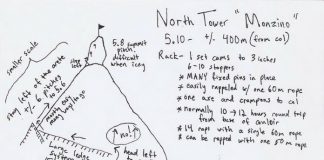 North Tower "Monzino"
5.10- +/- 400m (from col)
Rack- 1 set cams to 3 inches
6-10 stoppers
* MANY fixed pins in place
* easily rappeled w/ one 60m rope
* one axe and crampons to col
* normally 10 → 12 hours round trip
from base of
* 14 raps with a single 60m rope
* can be rapped with one 50m rope
smaller scale
5.8 summit
pitch.
difficult
when icy
step left
stay left of the arete
+/- 6 pitches
to 5.6
mostly easy
no!
Large ledge
head left